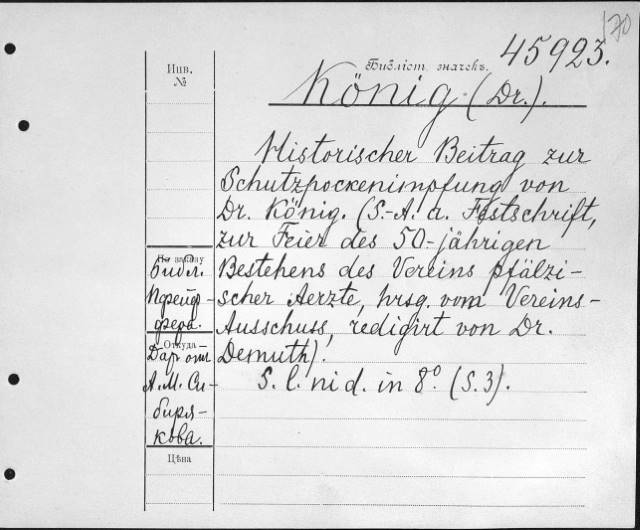 170
45923.
Инв.
№
Библіот. значекъ.
König (Dr.).
Historischer Beitrag zur
Schutzpockenimpfung von
Dr. König. (S.-A. a. Festschrift,
zur Feier des 50-jährigen
Bestehens des Vereins pfälzi-
scher Aerzte, hrsg. vom Vereins-
Ausschuss, redigirt von Dr.
Demuth).
S. l. ni d. in 8º. (S. 3).
По заказу
библ.
Пфейф-
фера.
Откуда
Дар отъ
А. М. Си-
биря-
кова.
Цѣна